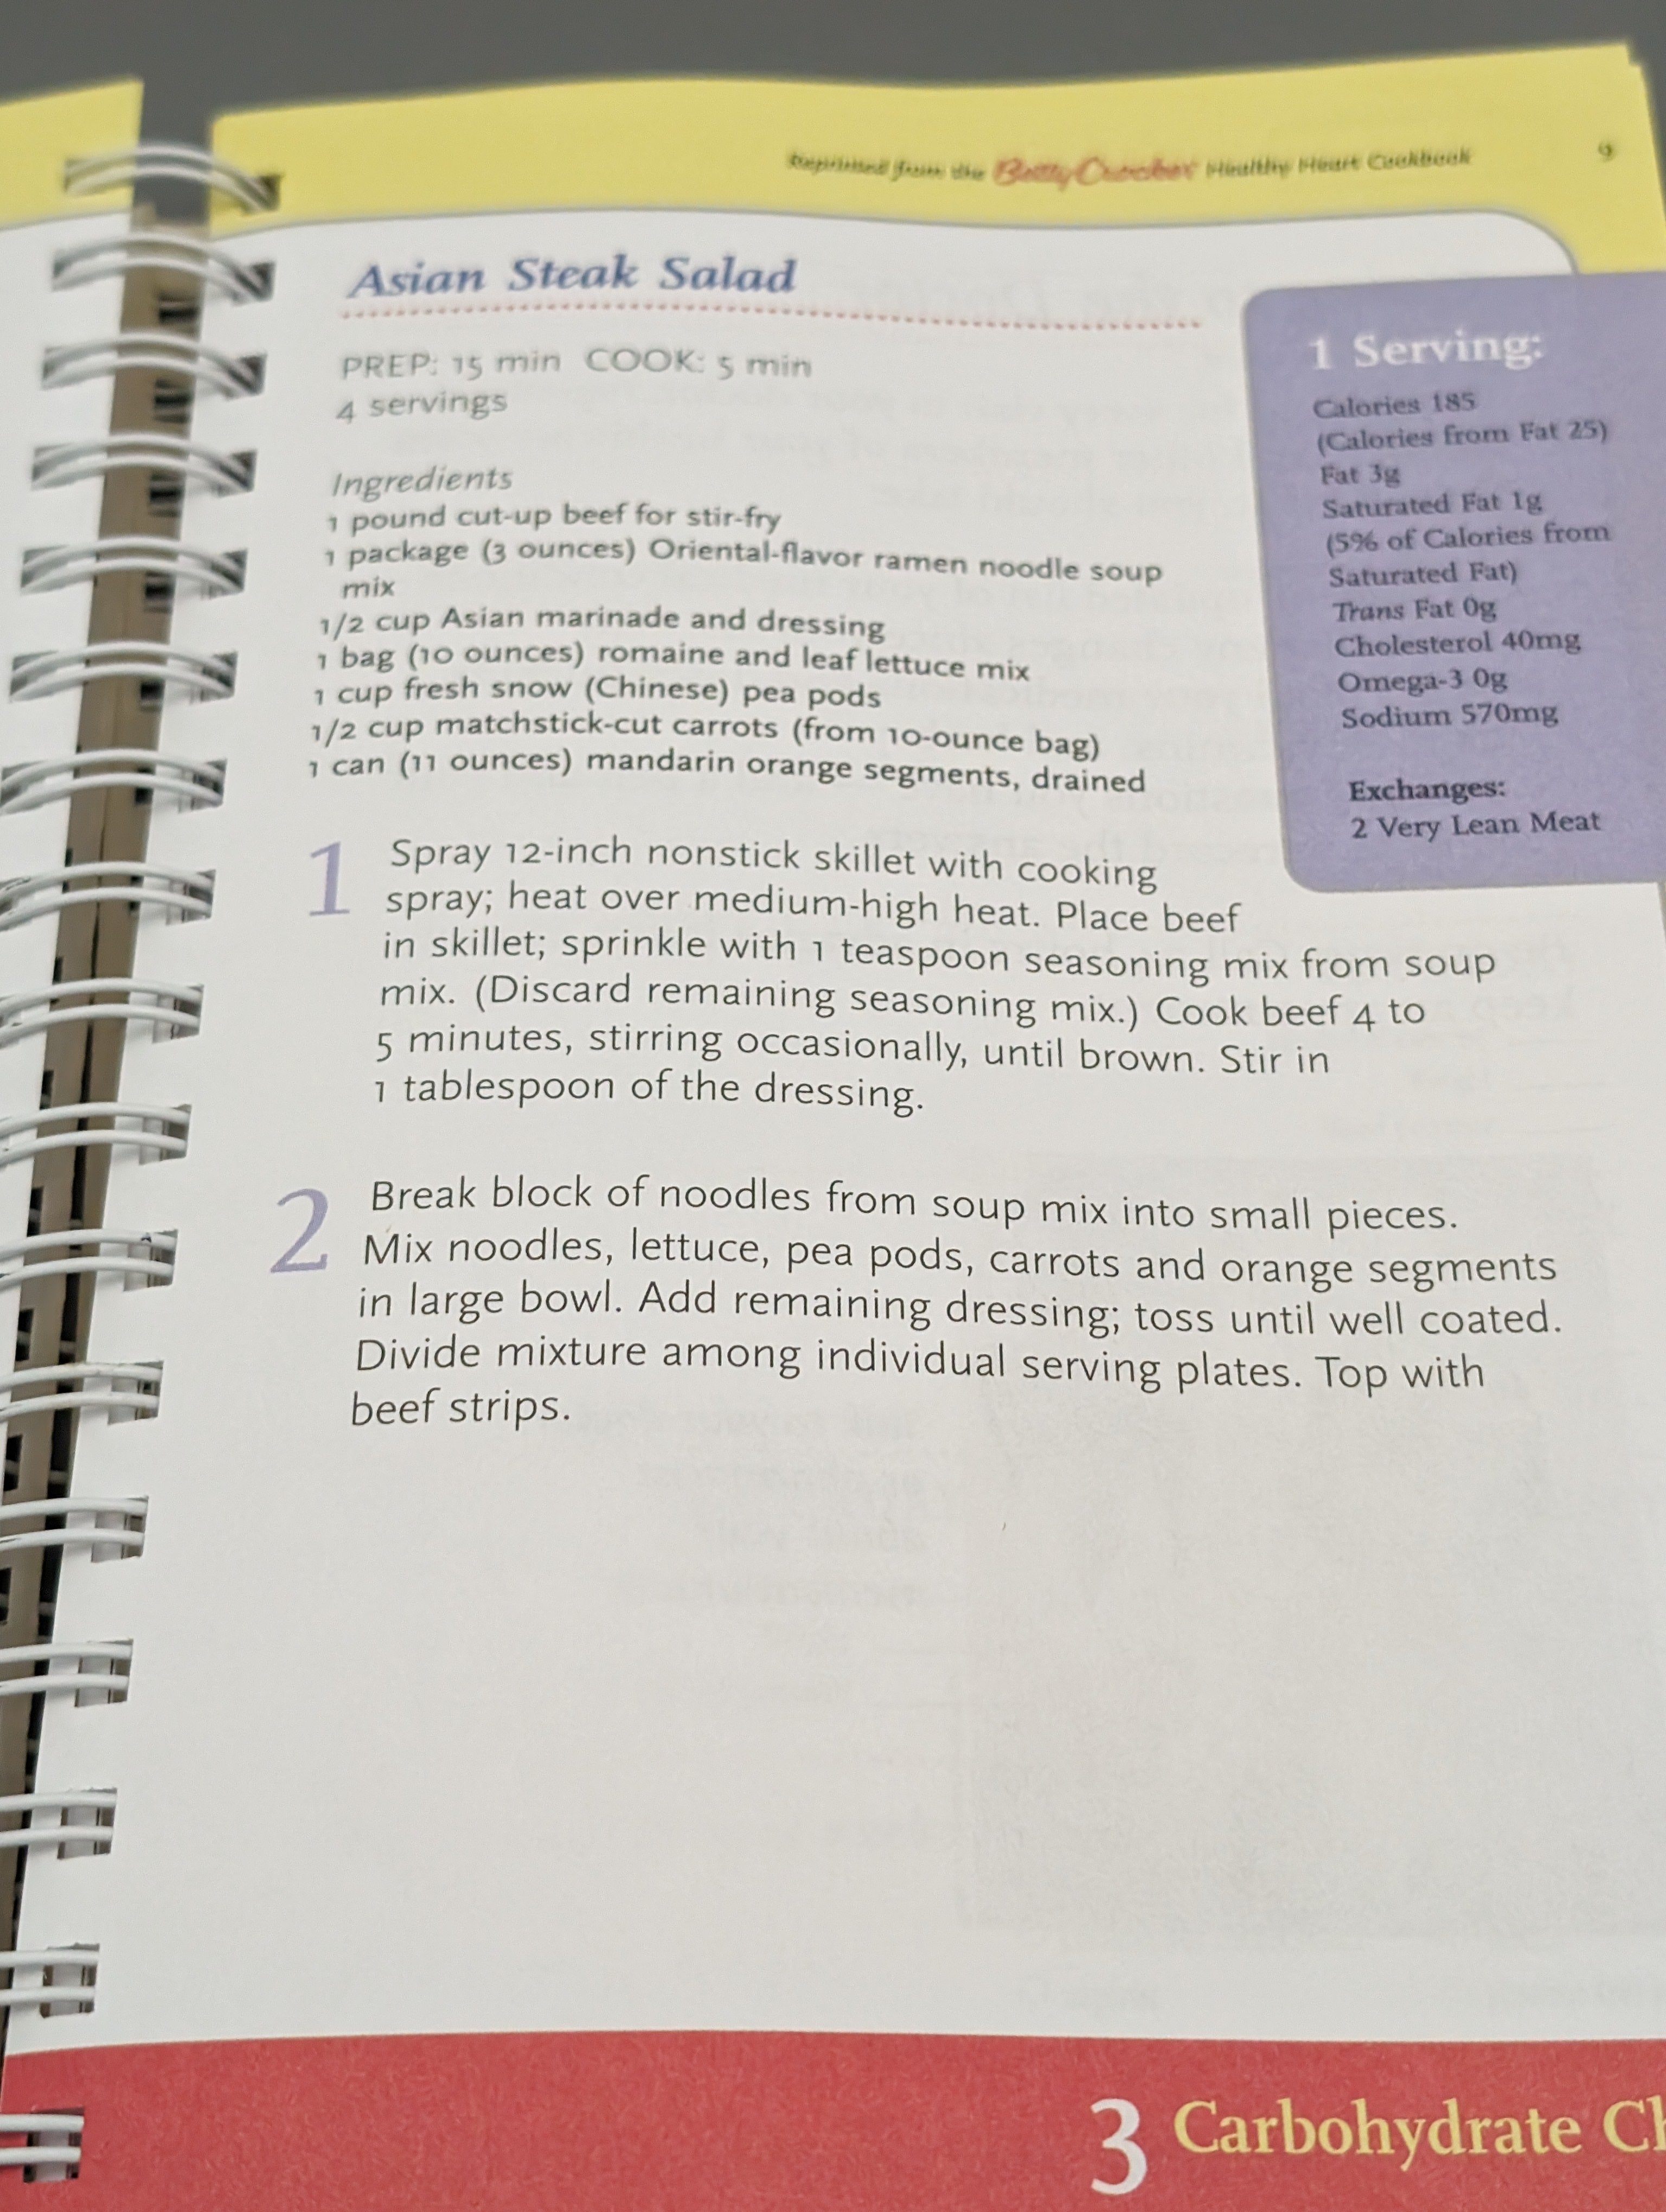 Reprinted from the Betty Crocker Healthy Heart Cookbook 9
Asian Steak Salad
PREP: 15 min COOK: 5 min
4 servings
Ingredients
1 pound cut-up beef for stir-fry
1 package (3 ounces) Oriental-flavor ramen noodle soup
mix
1/2 cup Asian marinade and dressing
1 bag (10 ounces) romaine and leaf lettuce mix
1 cup fresh snow (Chinese) pea pods
1/2 cup matchstick-cut carrots (from 10-ounce bag)
1 can (11 ounces) mandarin orange segments, drained
1 Serving:
Calories 185
(Calories from Fat 25)
Fat 3g
Saturated Fat 1g
(5% of Calories from
Saturated Fat)
Trans Fat 0g
Cholesterol 40mg
Omega-3 0g
Sodium 570mg
Exchanges:
2 Very Lean Meat
1 Spray 12-inch nonstick skillet with cooking
spray; heat over medium-high heat. Place beef
in skillet; sprinkle with 1 teaspoon seasoning mix from soup
mix. (Discard remaining seasoning mix.) Cook beef 4 to
5 minutes, stirring occasionally, until brown. Stir in
1 tablespoon of the dressing.
2 Break block of noodles from soup mix into small pieces.
Mix noodles, lettuce, pea pods, carrots and orange segments
in large bowl. Add remaining dressing; toss until well coated.
Divide mixture among individual serving plates. Top with
beef strips.
3 Carbohydrate Ch